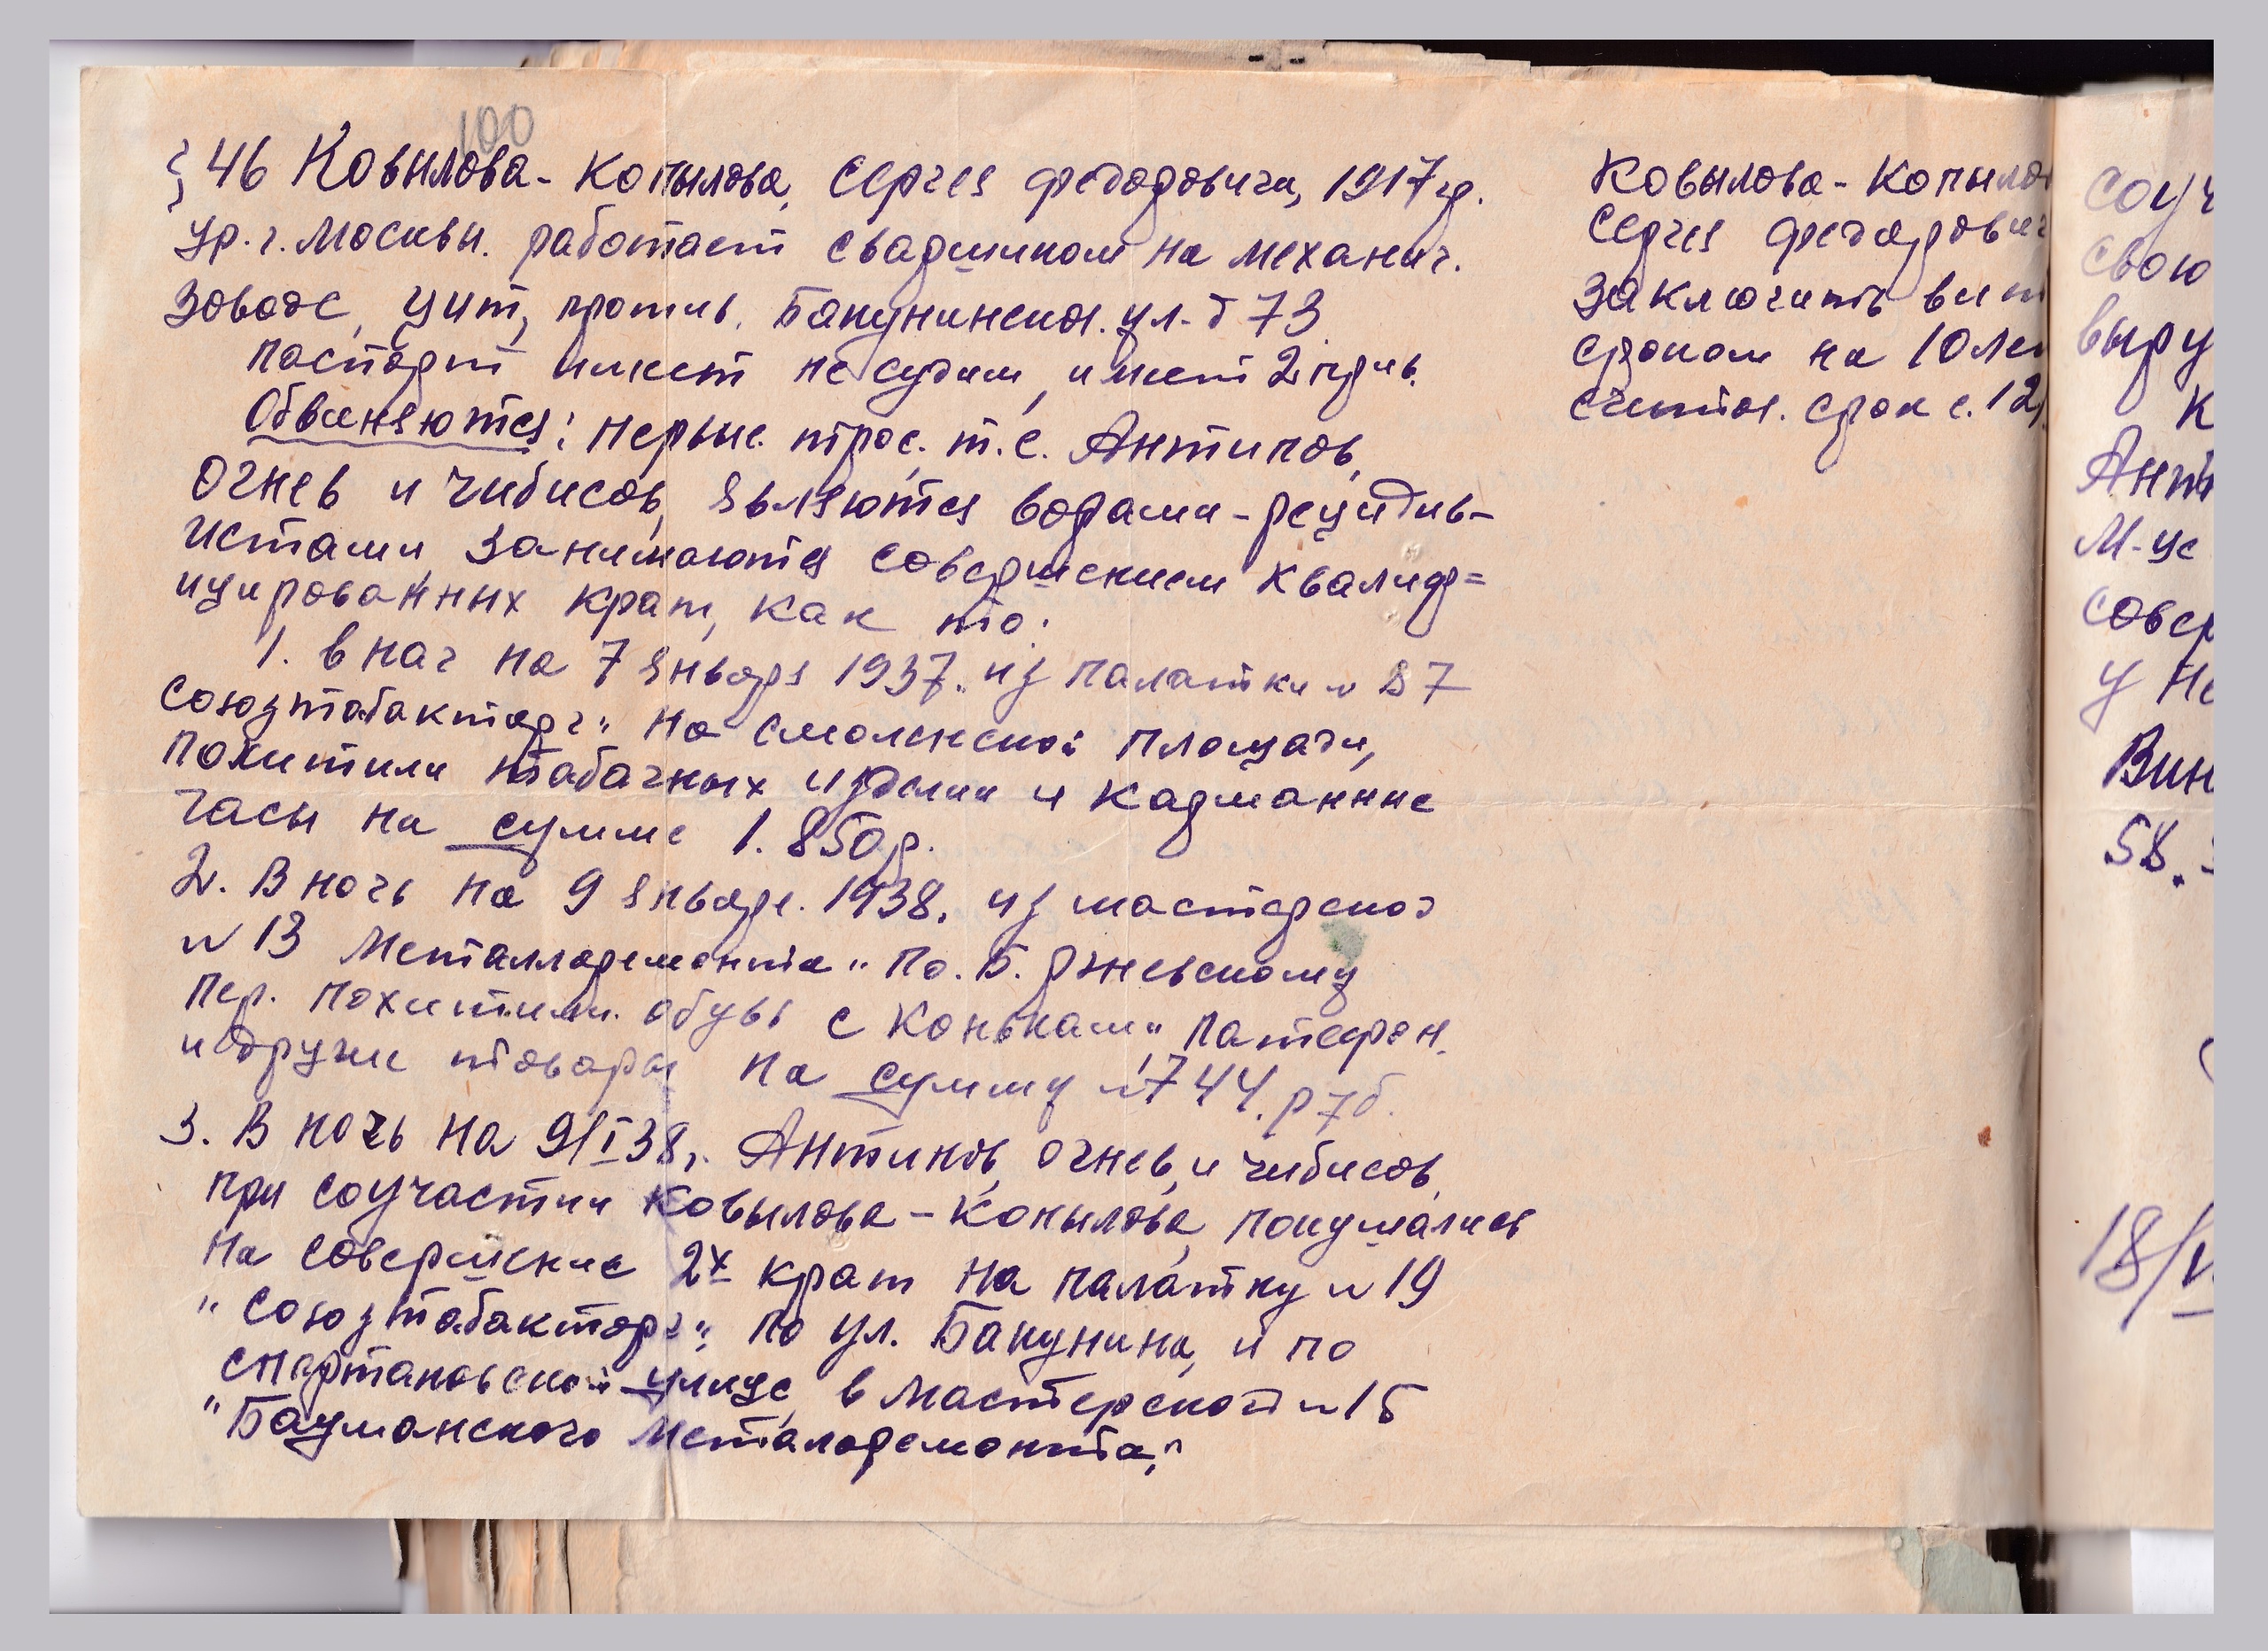 100
§ 46 Ковылова-Копылова, Сергея Федоровича, 1917г.р.
ур. г. Москвы. работает сварщиком на механич.
Заводе, прожив. Бакунинская. ул. д 73.
паспорт имеет не судим, имеет 2 прив.
Обвиняются: первые трое. т.е. Антипов,
Огнев и Чибисов, являются ворами-рецидив-
истами, занимаются совершением квалиф=
ицированных краж, как то:
1. в нач на 7 января 1937. из палатки № 87
Союзтабакторг" на Смоленской площади,
похитили табачных изделий и карманные
часы на сумме 1.850р.
2. В ночь на 9 января. 1938. из мастерской
№ 13 Металлоремонта" по. Б. Ржевскому
пер. похитили. обувь с коньками" патефон.
и другие товары на сумму 1744. р
3. В ночь на 9/I 38г. Антипов, Огнев, и Чибисов,
при соучастии Ковылова-Копылова, покушались
на совершение 2х краж на палатку № 19
"Союзтабакторг", по ул. Бакунина, и по
Спартаковской улице, в мастерской № 15
"Бауманского Металоремонта,"
Ковылова-Копыло
Сергея Федорович
Заключить в ит
сроком на 10 ле
Считая. срок с. 12,
соуч
свою
выру
К
Ант
М-ус
совер
у не
Вин
58.
18/V